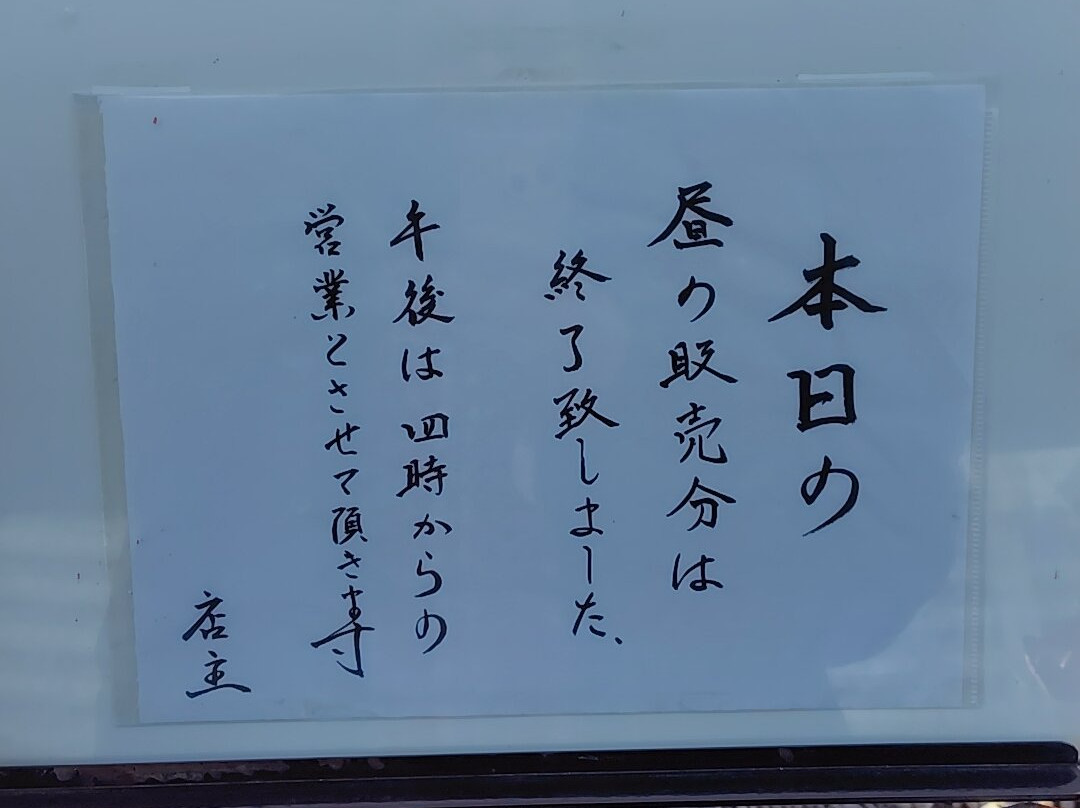 本日の
昼の販売分は
終了致しました、
午後は四時からの
営業とさせて頂きます
店主